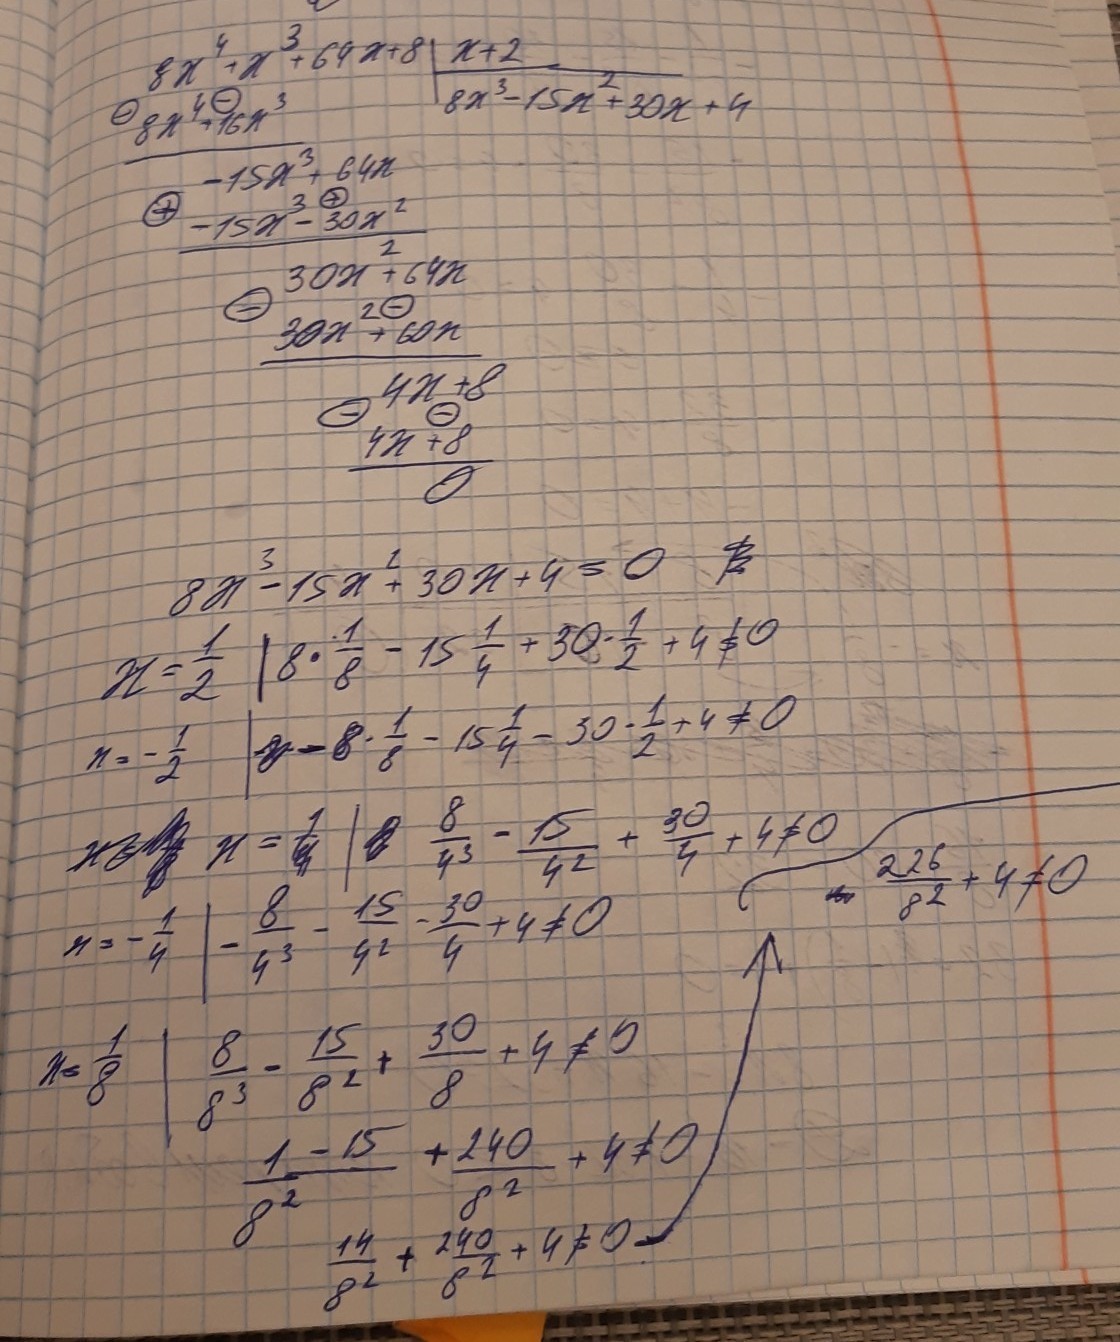 8x⁴+x³+64x+8 | x+2
⊖ 8x⁴ ⊖ +16x³ | 8x³-15x²+30x+4
-15x³+64x
⊕ -15x³ ⊕ -30x²
30x²+64x
⊖ 30x² ⊖ +60x
4x+8
⊖ 4x ⊖ +8
0
8x³-15x²+30x+4=0
x=1/2 | 8·1/8 - 15 1/4 + 30·1/2 + 4≠0
x=-1/2 | -8·1/8 - 15 1/4 - 30·1/2 + 4≠0
x=1/4 | 8/4³ - 15/4² + 30/4 + 4≠0
226/8² + 4≠0
x=-1/4 | -8/4³ - 15/4² - 30/4 + 4≠0
x=1/8 | 8/8³ - 15/8² + 30/8 + 4≠0
1-15/8² + 240/8² + 4≠0
14/8² + 240/8² + 4≠0